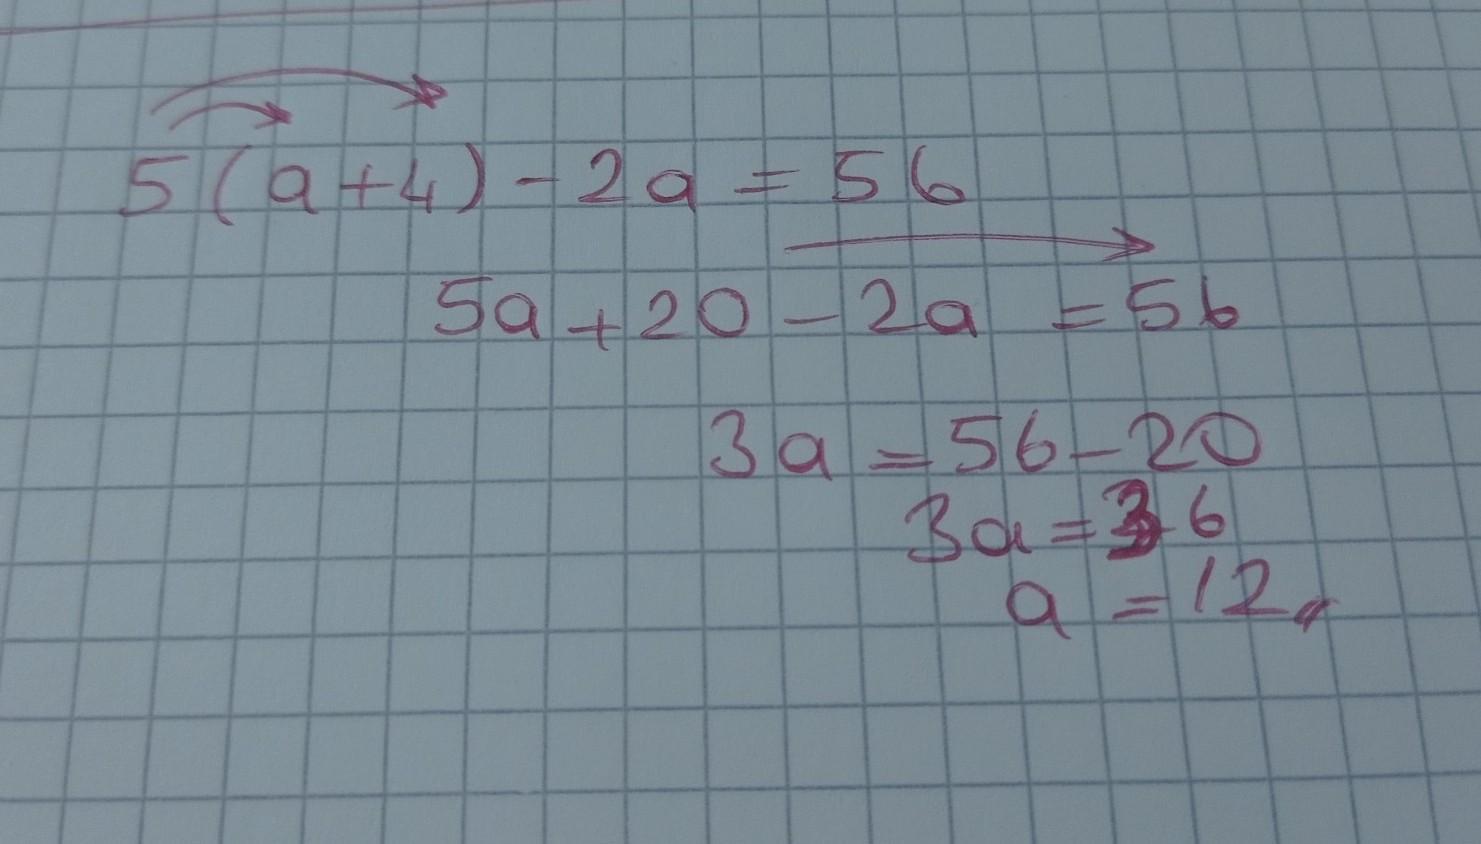 5(a+4)-2a=56
5a+20-2a=56
3a=56-20
3a=36
a=12